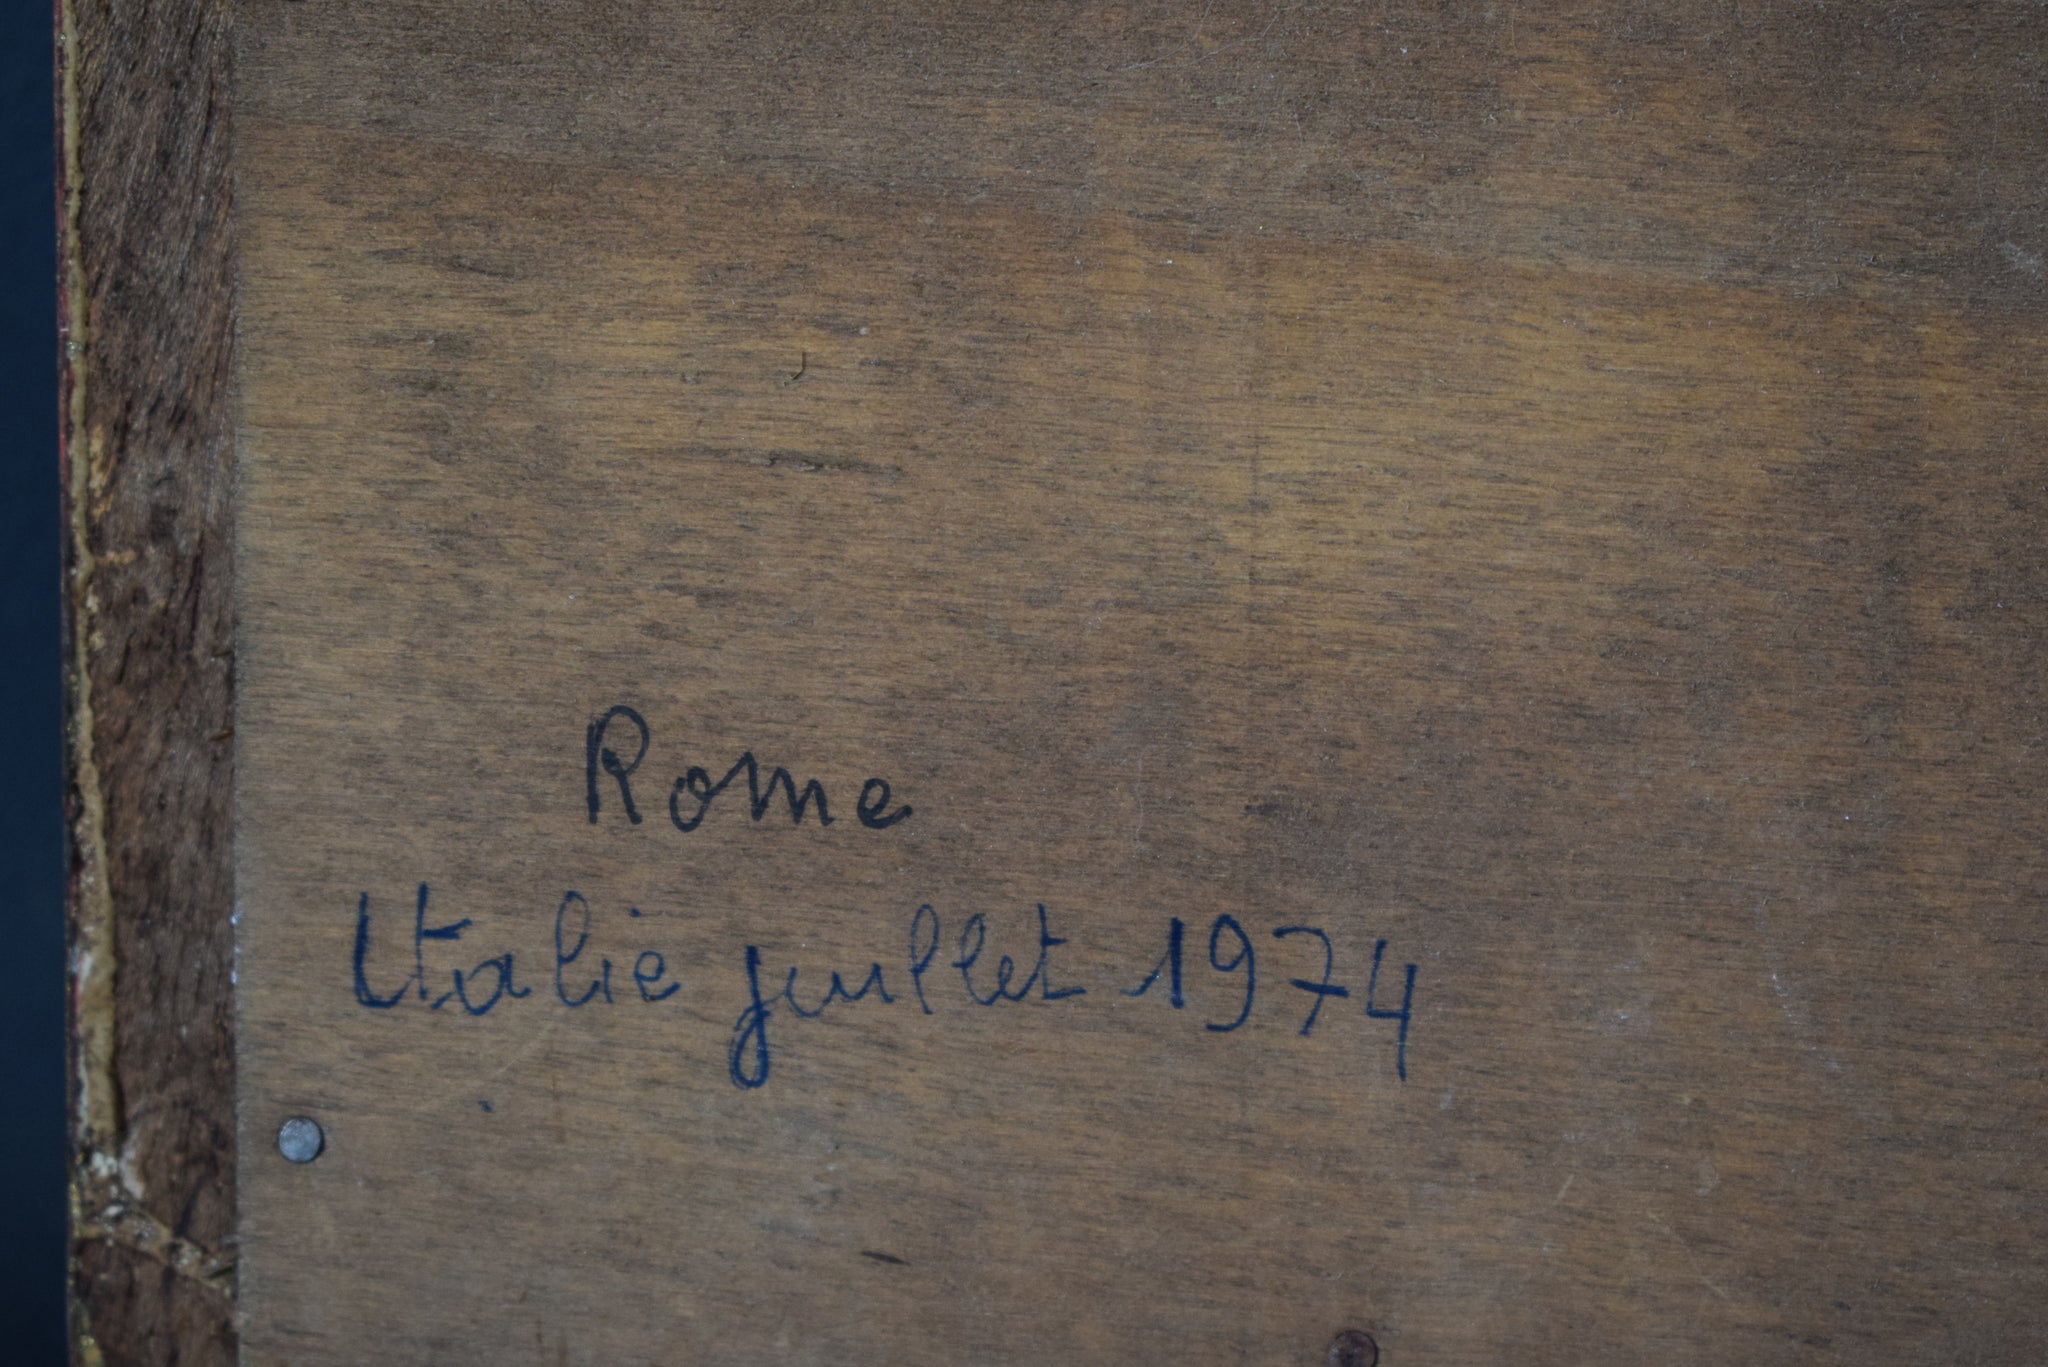 Rome
Italie juillet 1974